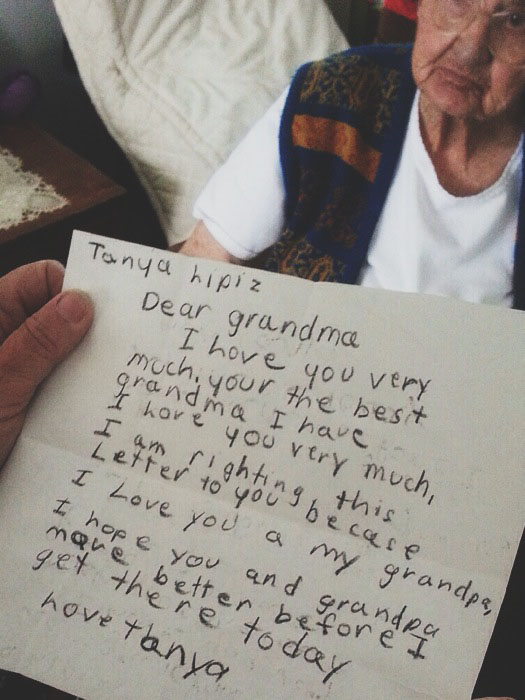 Tanya hipiz
Dear grandma
I hove you very
much, your the best
grandma I have
I hore you very much,
I am righting this
Letter to you becase
I Love you a my grandpa,
I hope you and grandpa
move better before I
get there today
hove thanya